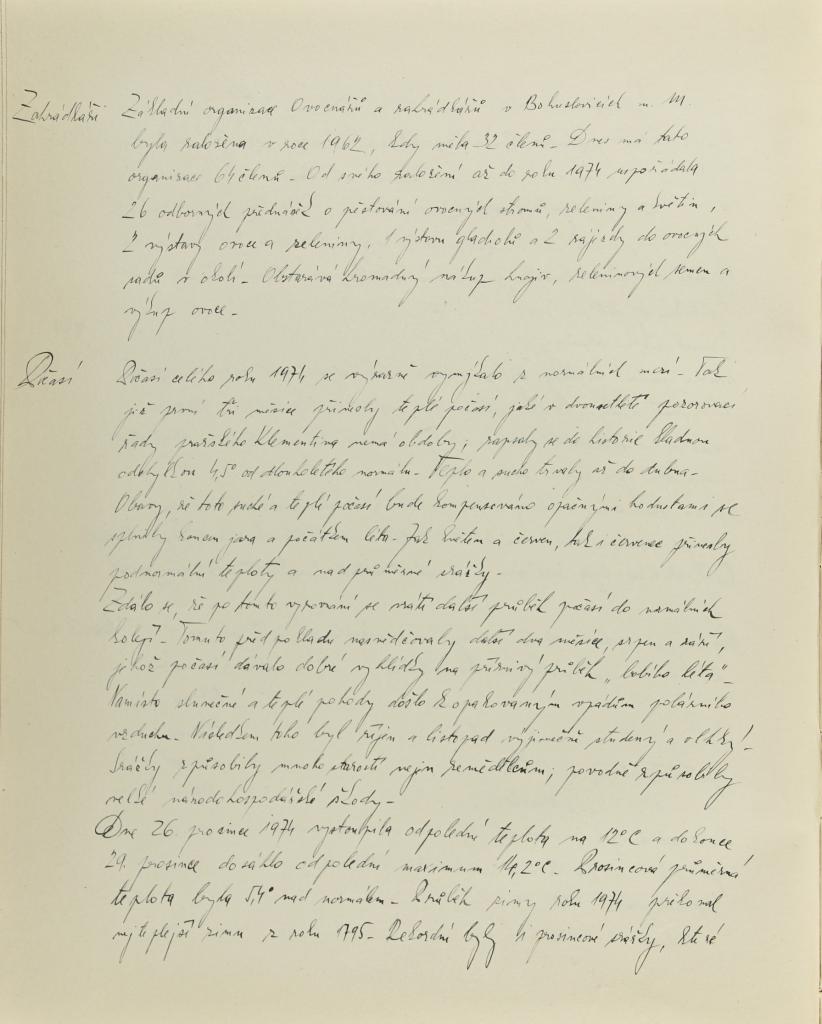 Zahrádkáři Základní organizace Ovocnářů a zahrádkářů v Bohuslavicích n. M.
byla založena v roce 1962, kdy měla 32 členů. Dnes má tato
organizace 64 členů. Od svého založení až do roku 1974 uspořádala
26 odborných přednášek o pěstování ovocných stromů, zeleniny a květin,
2 výstavy ovoce a zeleniny, 1 výstavu gladiolů a 2 zájezdy do ovocných
sadů v okolí. Obstarává hromadný nákup hnojiv, zeleninových semen a
výkup ovoce.
Počasí Počasí celého roku 1974 se výrazně vymykalo z normálních mezí. Tak
již první tři měsíce přinesly teplé počasí, jaké v dvousetleté pozorovací
řady pražského Klementina nemá obdoby; zapsaly se do historie kladnou
odchylkou 4,5° od dlouholetého normálu. Teplo a sucho trvaly až do dubna.
Obavy, že toto suché a teplé počasí bude kompensováno opačnými hodnotami se
splnily koncem jara a počátkem léta. Jak květen a červen, tak i červenec přinesly
podnormální teploty a nadprůměrné srážky.
Zdálo se, že po tomto vyrovnání se vrátí další průběh počasí do normálních
kolejí. Tomuto předpokladu nasvědčovaly další dva měsíce, srpen a září,
jehož počasí dávalo dobré vyhlídky na příznivý průběh „babího léta".
Namísto slunečné a teplé pohody došlo k opakovaným vpádům polárního
vzduchu. Následkem toho byl říjen a listopad výjimečně studený a vlhký.
Srážky způsobily mnoho starostí nejen zemědělcům; povodně způsobily
velké národohospodářské škody.
Dne 26. prosince 1974 vystoupila odpolední teplota na 12°C a dokonce
29. prosince dosáhlo odpolední maximum 14,2°C. Prosincová průměrná
teplota byla 5,4° nad normálem. Průběh zimy roku 1974 překonal
nejteplejší zimu z roku 1795. Rekordní byly i prosincové srážky, které